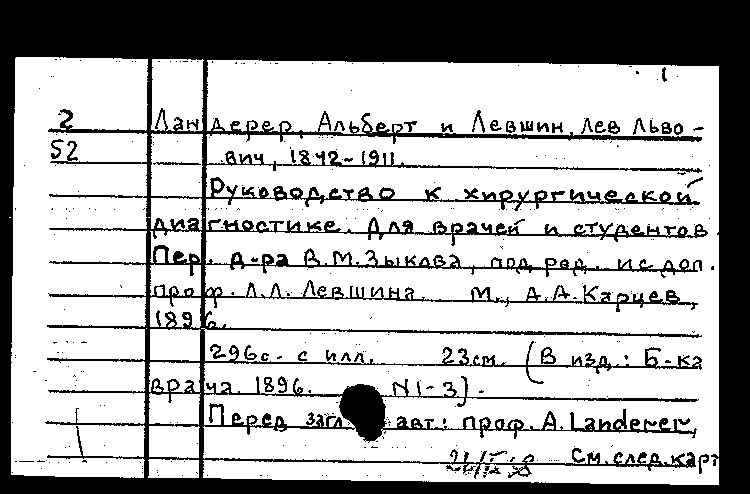 1
2 Ландерер, Альберт и Левшин, Лев Льво-
52 вич, 1842-1911.
Руководство к хирургической
диагностике. Для врачей и студентов.
Пер. д-ра В.М.Зыкова, под ред. и с доп.
проф. Л.Л. Левшина. М., А.А.Карцев,
1896.
296с. с илл. 23см. (В изд.: Б-ка
врача. 1896. N1-3).
Перед загл. авт: проф. A. Landerer,
См.след.карт